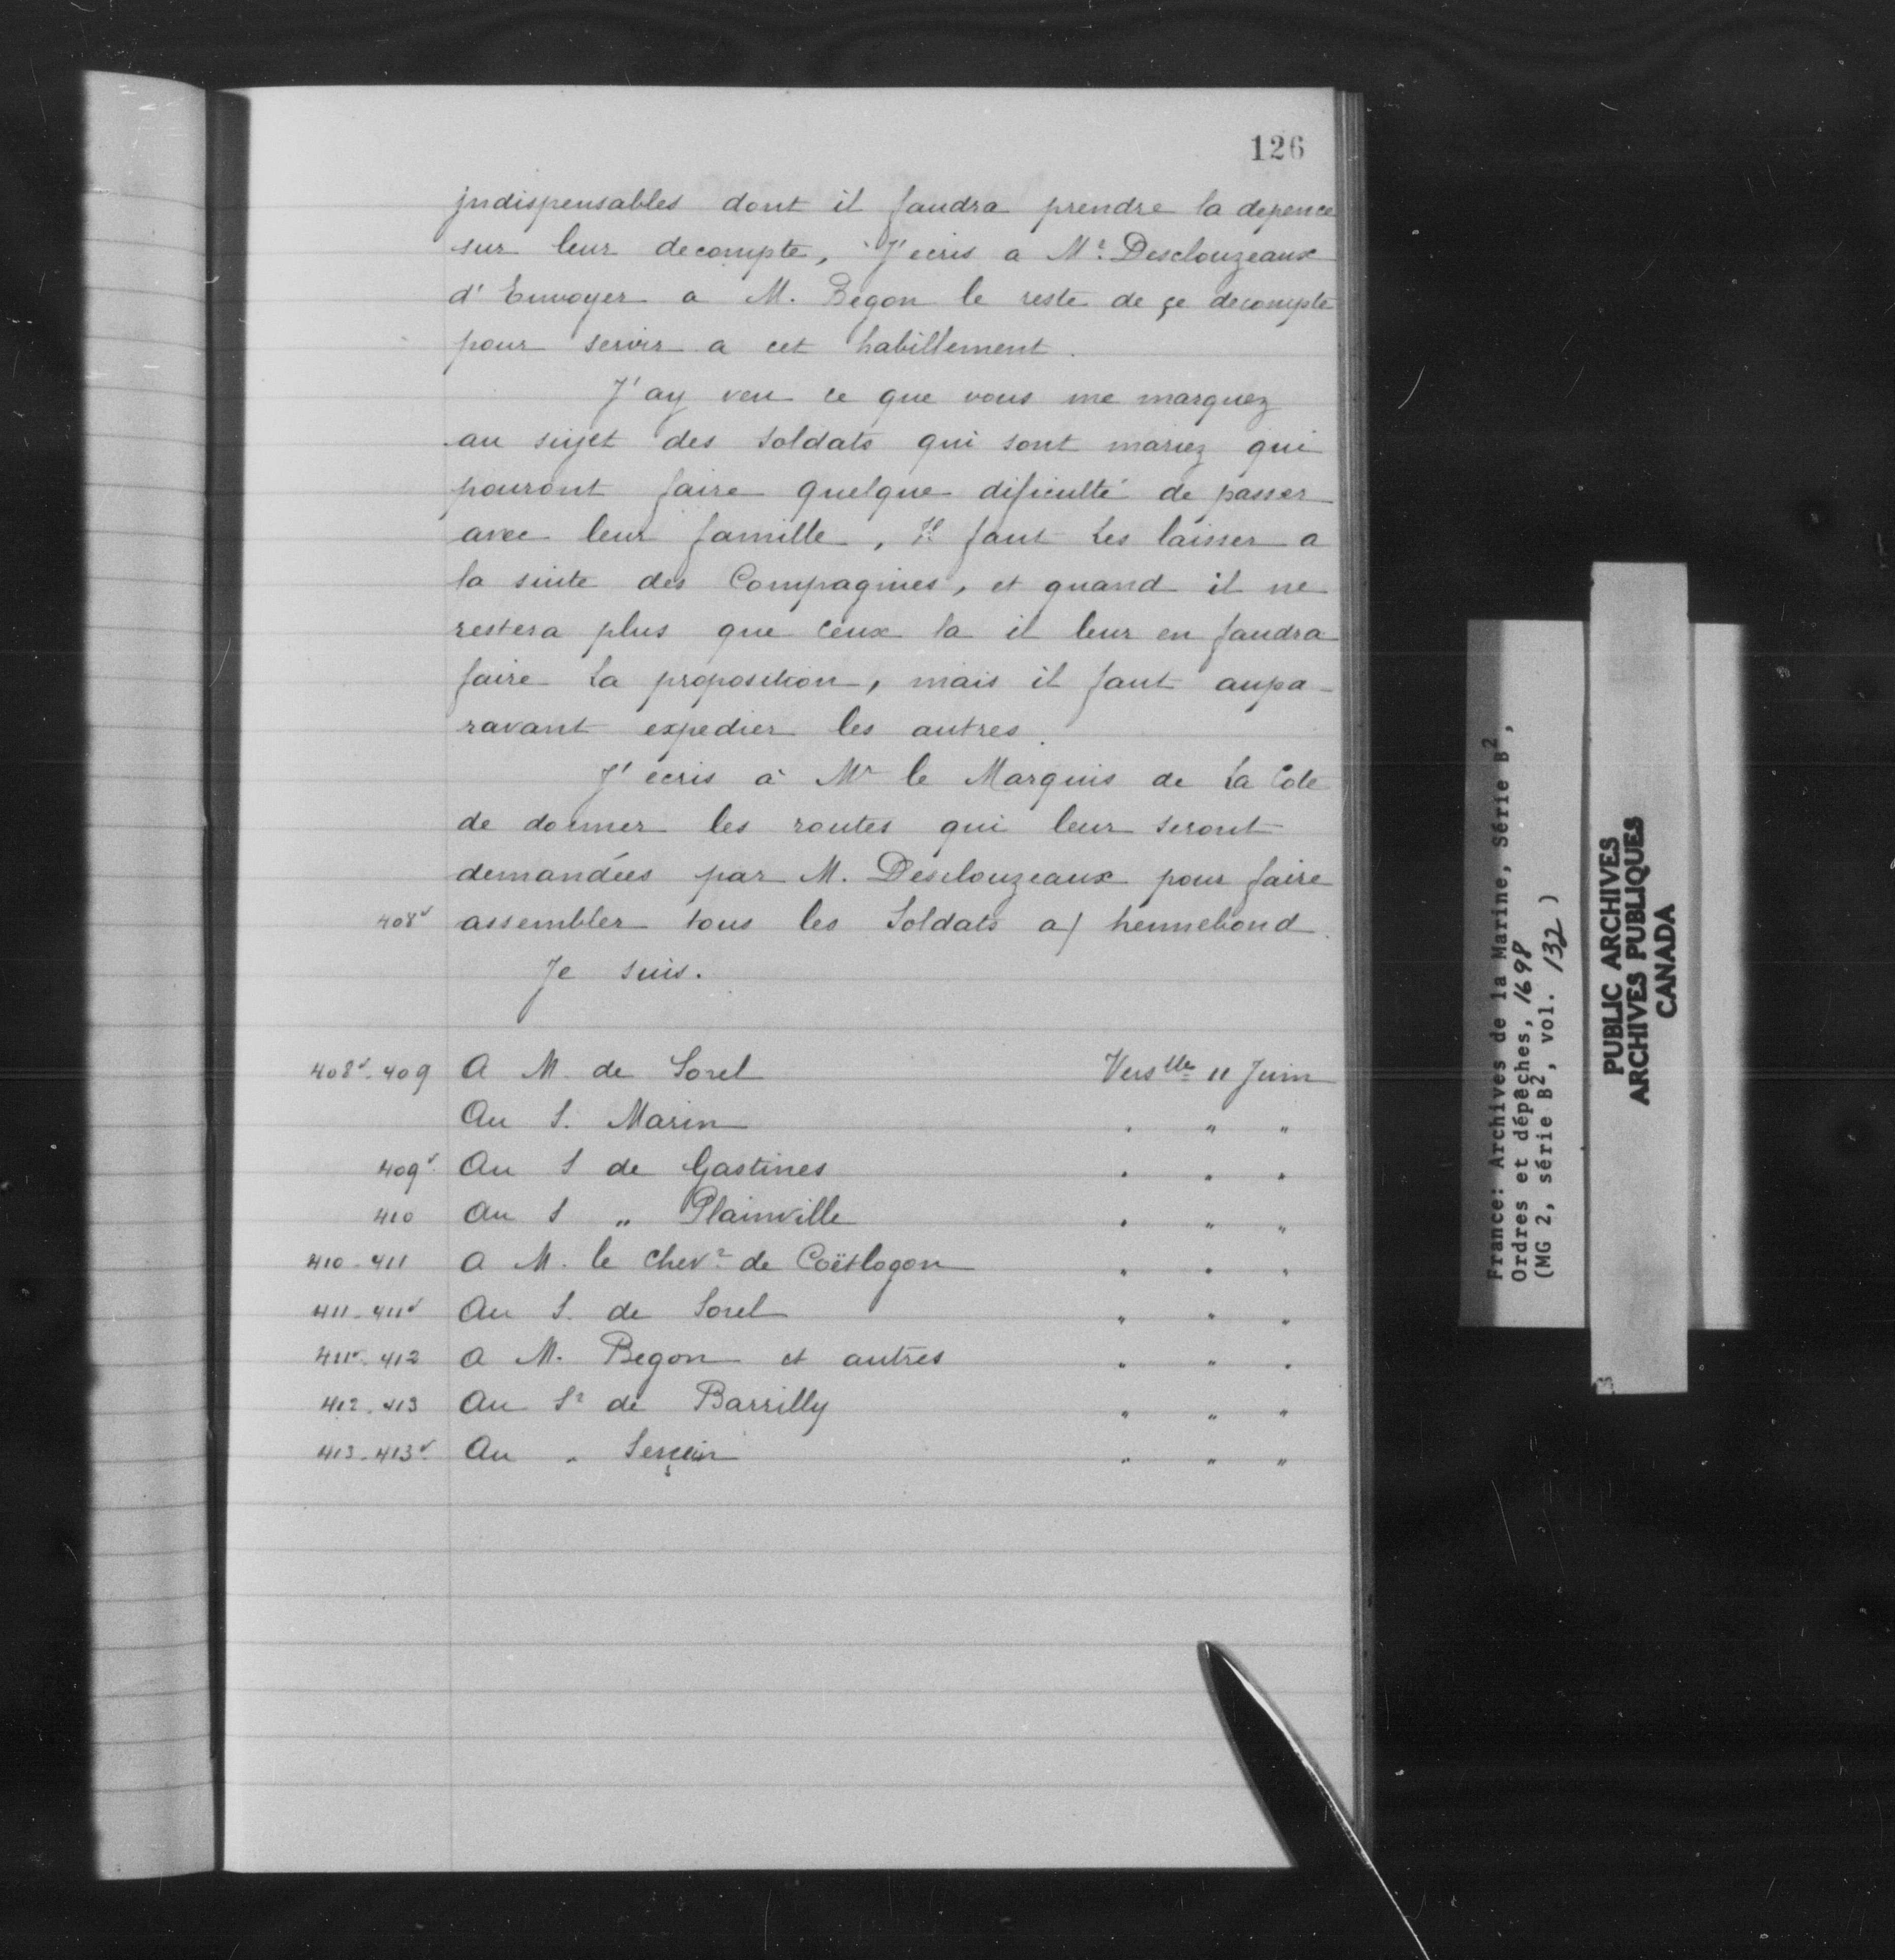 126
jndispensables dont il faudra prendre la depence
sur leur decompte, J'ecris a Mr. Desclouzeaux
d'Envoyer a M. Begon le reste de çe decompte
pour servir a cet habillement.
J'ay veu ce que vous me marquez
au sujet des soldats qui sont mariez qui
pouront faire quelque dificulté de passer
avec leur famille, Il faut Les laisser a
la suite des Compagnies, et quand il ne
restera plus que ceux la il leur en faudra
faire La proposition, mais il faut aupa-
ravant expedier les autres.
J'écris à Mr le Marquis de La Cote
de donner les routes qui leur seront
demandées par M. Desclouzeaux pour faire
408v assembler tous les Soldats a/ hennebond.
Je suis.
408v-409 A M. de Sorel Verslles 11 Juin
Au S. Marin " " "
409v Au S de Gastines " " "
410 Au S " Plainville " " "
410-411 A M. le chevr de Coëtlogon " " "
411-411v Au S. de Sorel " " "
411v-412 A M. Begon et autres " " "
412-413 Au Sr de Barrilly " " "
413-413v Au " " " "
France: Archives de la Marine, Série B2,
Ordres et dépêches, 1698
(MG 2, série B2, vol. 132)
PUBLIC ARCHIVES
ARCHIVES PUBLIQUES
CANADA